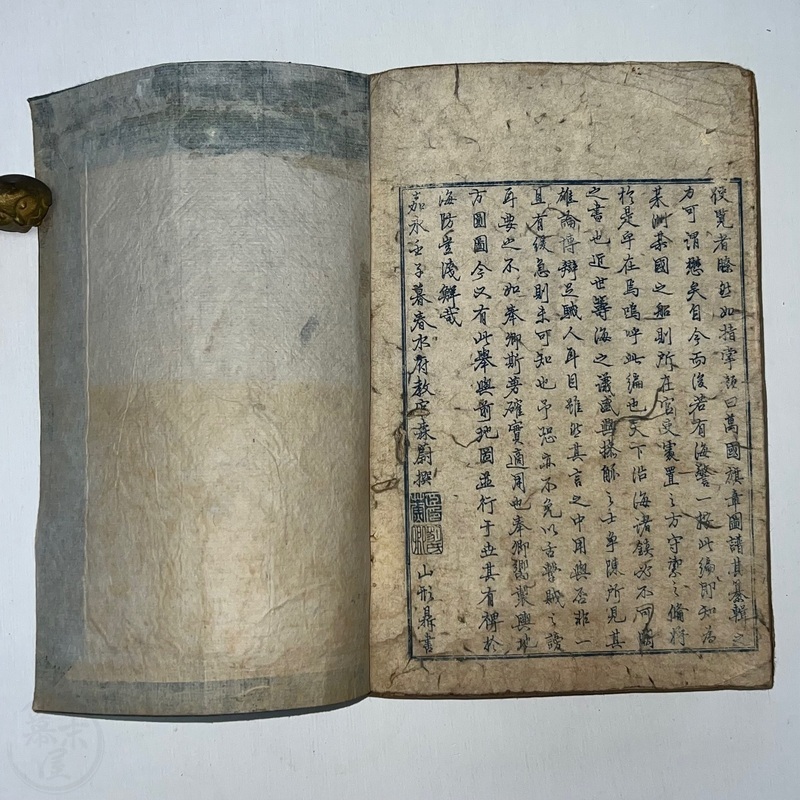 便覧者瞭然如指掌題曰萬國旗章圖譜其纂輯之
力可謂懋矣自今而後若有海警一披此編即知為
某洲某國之船則所在官吏処置之方守禦之備将
於是乎在焉嗚呼此編也天下沿海諸鎮必不可闕
之書也近世籌海之議盛興搢紳之士争陳所見其
雄論博辯足聝人耳目雖然其言之中用與否非一
旦有緩急則未可知也予恐亦不免以舌撃賊之謗
耳要之不如奉卿斯著確實適用也奉卿嚮業輿地
方圖圖今又有此舉與前地図並行于世其有裨於
海防豈淺鮮哉
嘉永壬子暮春水府教官森蔚撰
山形鼎書